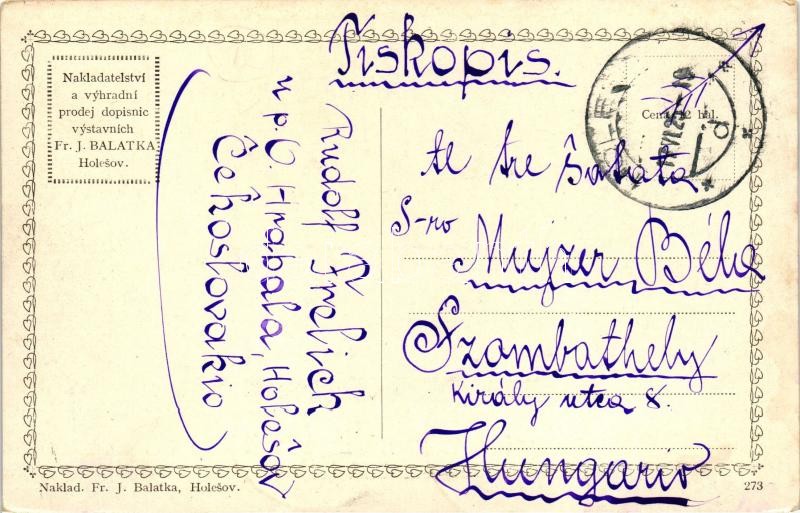 Tiskopis.
Nakladatelství
a výhradní
prodej dopisnic
výstavních
Fr. J. BALATKA
Holešov.
Rudolf Frelich
u p. O. Hrabala, Holešov
Čehoslovakio
Cena 12 hal.
al tre ŝatata
S-ro
Mujzer Béla
Szombathely
Király utca 8.
Hungario
Naklad. Fr. J. Balatka, Holešov.
273